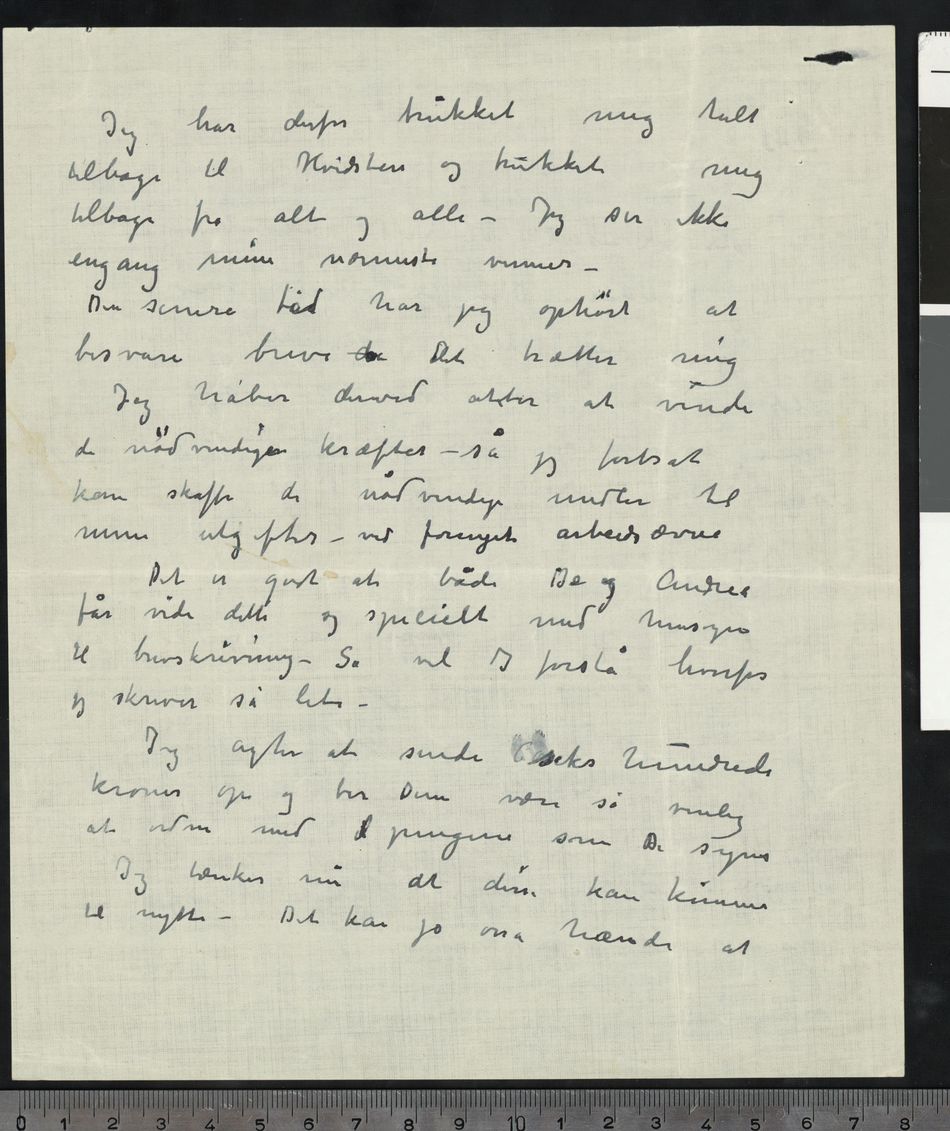 Jeg har derfor trukket mig helt
tilbage til Hvidsten og trukket mig
tilbage fra alt og alle – Jeg ser ikke
engang mine nærmeste venner –
Den senere tid har jeg ophört at
besvare breve Det trætter mig
Jeg håber derved atter at vinde
de nödvendige kræfter – så jeg fortsat
kan skaffe de nödvendige midler til
mine utgifter – ved fornyet arbeidsævne
Det er godt at både De og Andrea
får vide dette og specielt med hensyn
til brevskrivning – Så vil I forstå hvorfor
jeg skriver så lite –
Jeg agter at sende seks hundrede
kroner op og ber Dem være så venlig
at ordne med pengene som De synes
Jeg tænker nu at disse kan komme
til nytte – Det kan jo osså hænde at